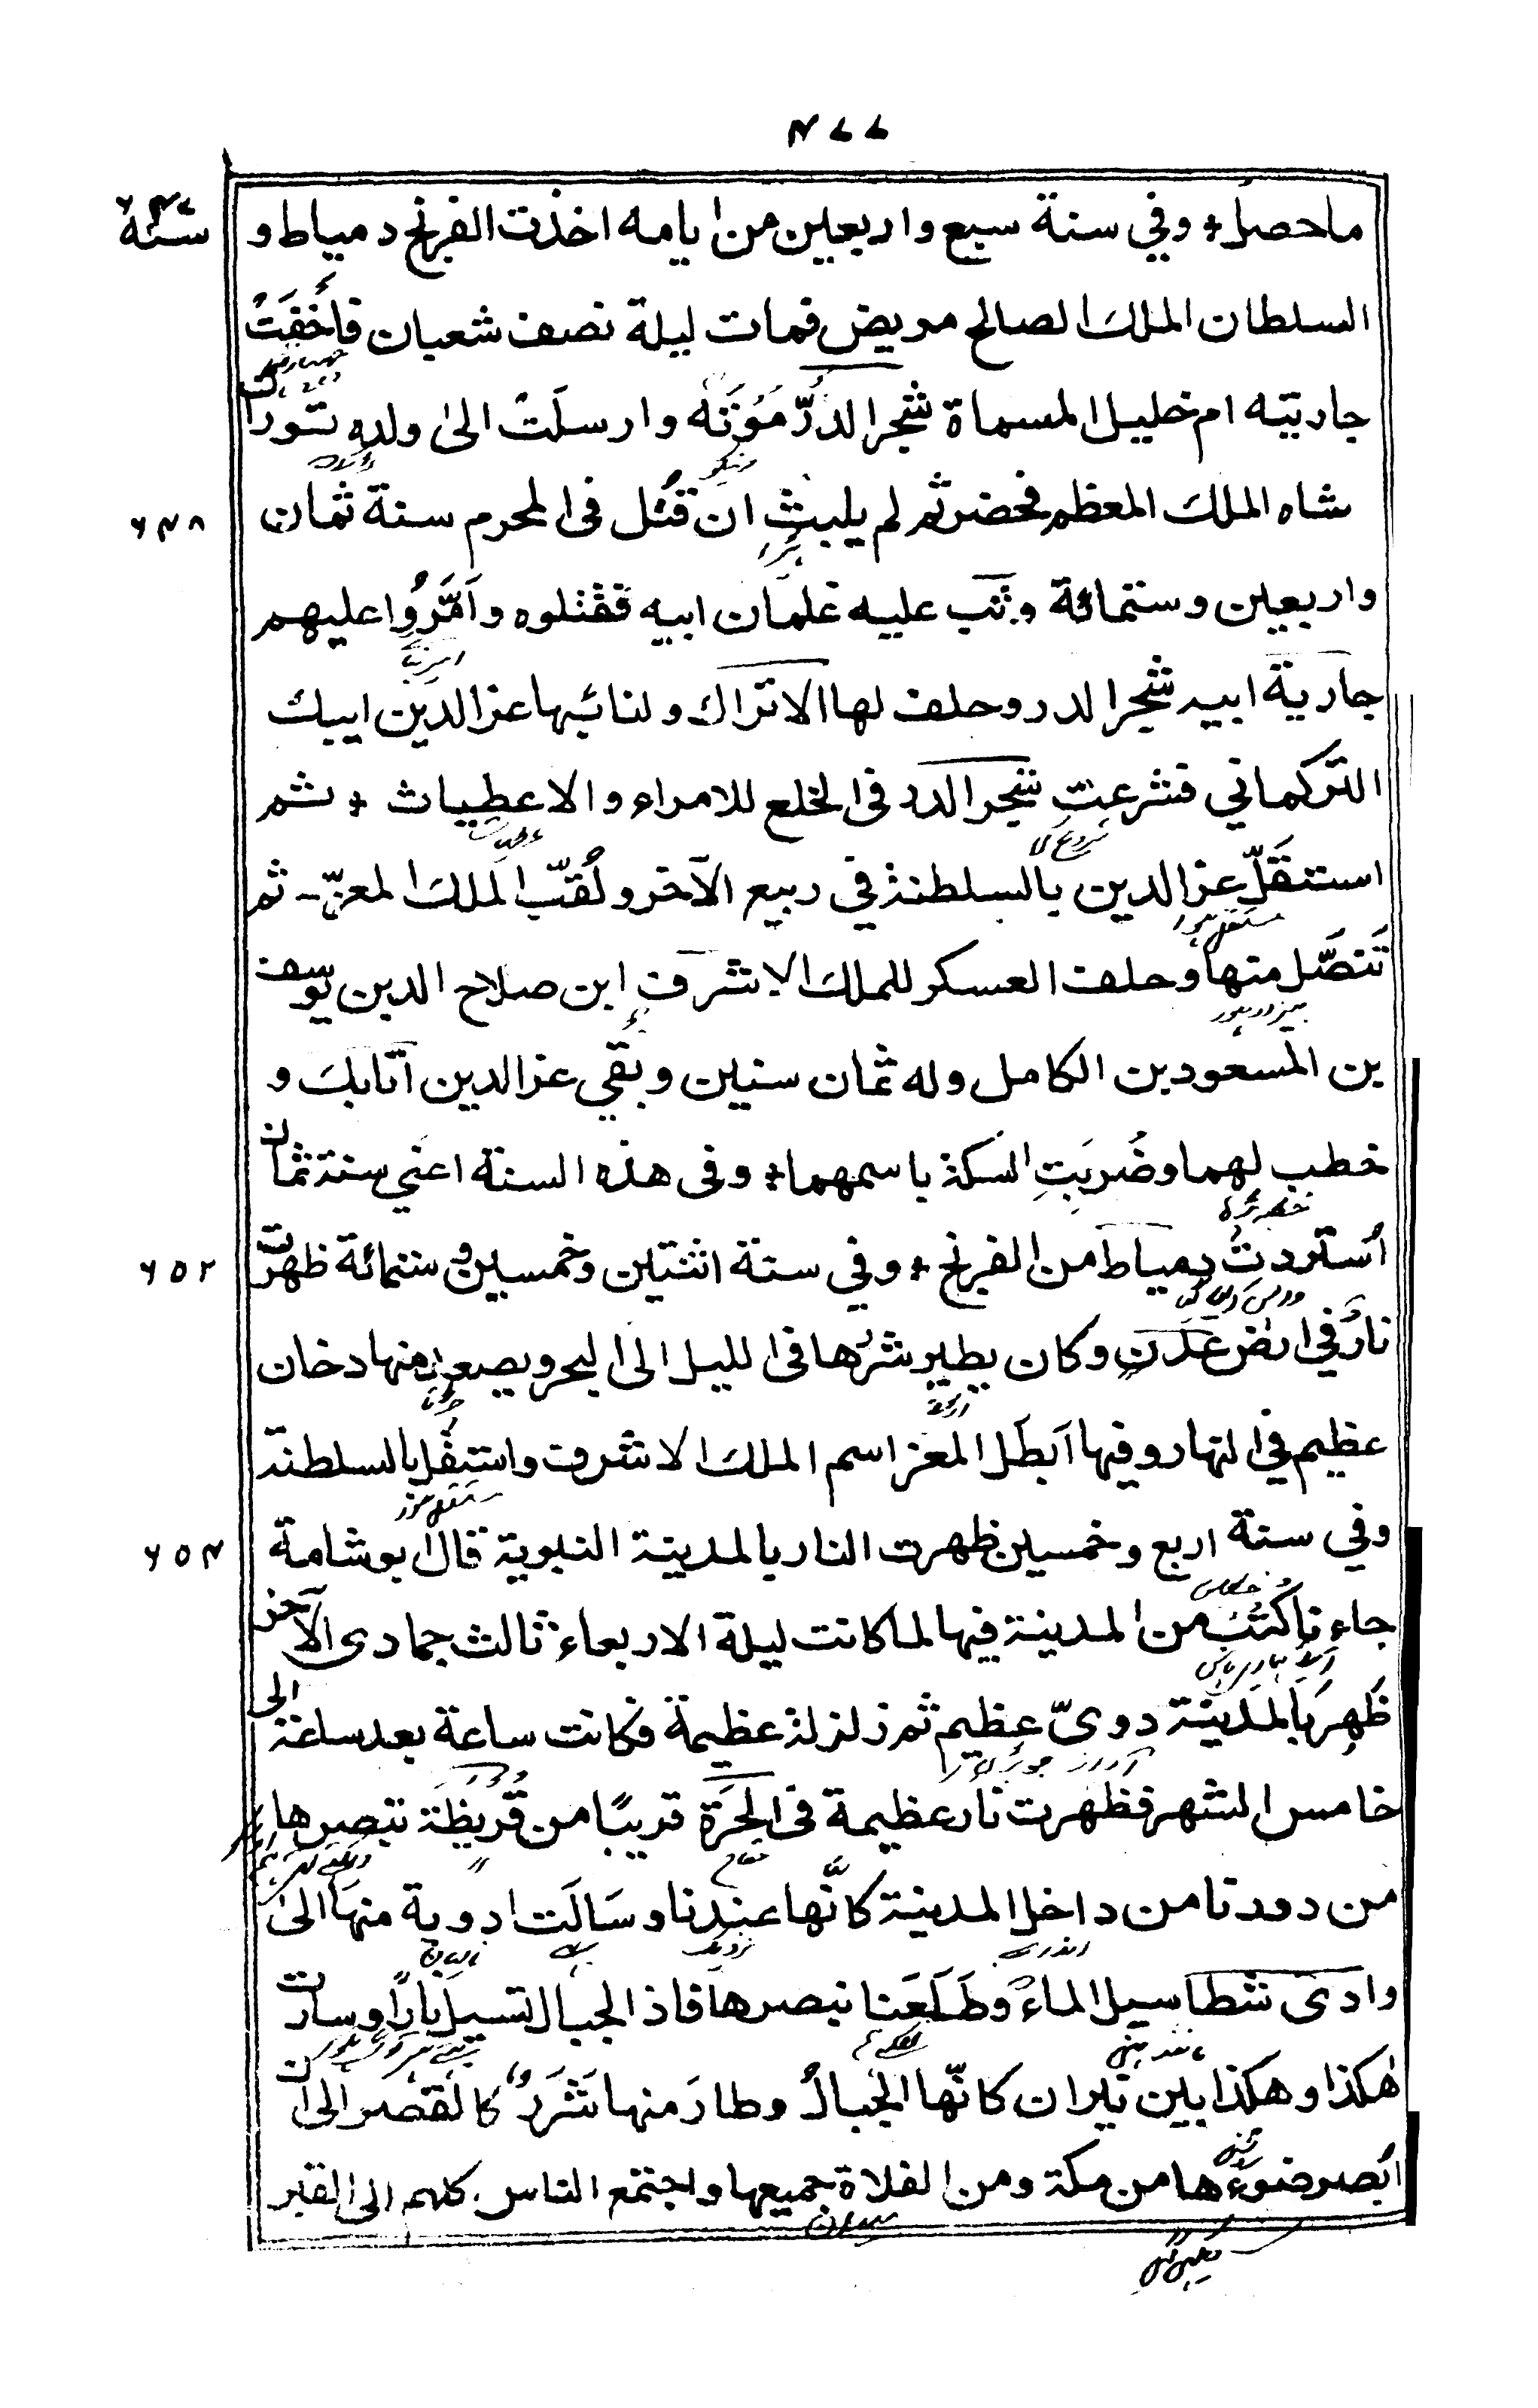 ۴۷۷
ما حصل + وفي سنة سبع واربعين من ايامه اخذت الفرنج دمياط و
سنة ۶۴۷
السلطان الملك الصالح مريض فمات ليلة نصف شعبان فاَخْفَتْ
جاريته ام خليل المسماة شجر الدرّ مَوْتَه وارسلَتْ الىٰ ولده توران
شاه الملك المعظم فحضر ثم لم يلبث ان قُتل فى المحرم سنة ثمان
۶۴۸
واربعين وستمائة وثب عليه غلمان ابيه فقتلوه واَمَّرُوا عليهم
جارية ابيه شجر الدر وحلف لها الاتراك ولنائبها عز الدين ايبك
التركماني فشرعت شجر الدر فى الخلع للامراء والاعطيات + ثم
استقلّ عز الدين بالسلطنة في ربيع الآخر ولُقّب الملك المعزّ ـ ثم
تَنَصَّل منها وحلف العسكر للملك الاشرف ابن صلاح الدين يوسف
بن المسعود بن الكامل وله ثمان سنين وبقي عز الدين اتابك و
خطب لهما وضُرِبَتِ السكة باسمهما + وفى هذه السنة اعني سنة ثمان
اُستردت دمياط من الفرنج + وفي سنة اثنتين وخمسين وستمائة ظهرت
۶۵۲
نارٌ في ارض عَدَن وكان يطير شررها فى الليل الى البحر ويصعد منها دخان
عظيم في النهار وفيها اَبطَل المعز اسم الملك الاشرف واستقل بالسلطنة
وفي سنة اربع وخمسين ظهرت النار بالمدينة النبوية قال ابو شامة
۶۵۴
جاءنا كُتُبٌ من المدينة فيها لما كانت ليلة الاربعاء ثالث جمادى الآخر
ظَهر بالمدينة دويّ عظيم ثم زلزلة عظيمة فكانت ساعة بعد ساعة الى
خامس الشهر فظهرت نار عظيمة فى الحَرَّة قريبًا من قُرَيظَة نبصرها
من دورنا من داخل المدينة كانّها عندنا وسَالَت اودية منها الىٰ
وادى شطا سيل الماء وطَلَعنا نبصرها فاذا الجبال تسيل نارًا وسارت
هٰكذا وهكذا بين نيران كانّها الجبالُ وطارَ منها شَرَرٌ كالقصر الى ان
اُبصر ضوءها من مكة ومن الفلاة جميعها واجتمع الناس كلهم الى القبر